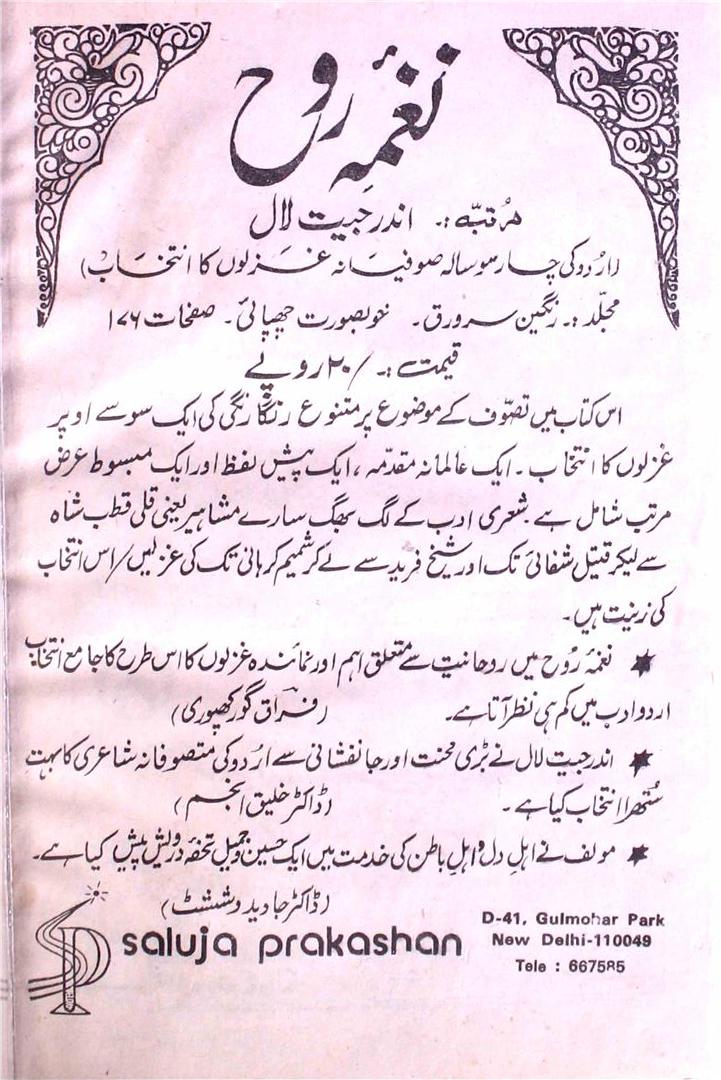 نغمۂ روح
مرتبّہ :۔ اندر جیت لال
(اردو کی چار سو سالہ صوفیانہ غزلوں کا انتخاب)
مجلّد :۔ رنگین سرورق۔ خوبصورت چھپائی۔ صفحات ۱۷۶
قیمت :۔ /۲۰ روپے
اس کتاب میں تصوّف کے موضوع پر متنوع رنگارنگی کی ایک سو سے اوپر
غزلوں کا انتخاب ۔ ایک عالمانہ مقدّمہ ، ایک پیش لفظ اور ایک مبسوط عرض
مرتب شامل ہے۔ شعری ادب کے لگ بھگ سارے مشاہیر یعنی قلی قطب شاہ
سے لیکر قتیل شفائی تک اور شیخ فرید سے لے کر شمیم کرہانی تک کی غزلیں / اس انتخاب
کی زینت ہیں۔
★ نغمۂ رُوح میں روحانیت سے متعلق اہم اور نمائندہ غزلوں کا اس طرح کا جامع انتخاب
اردو ادب میں کم ہی نظر آتا ہے۔ (فراق گورکھپوری)
★ اندر جیت لال نے بڑی محنت اور جانفشانی سے اُردو کی متصوفانہ شاعری کا بہت
ستھرا انتخاب کیا ہے ۔ (ڈاکٹر خلیق انجم)
★ مولف نے اہلِ دل و اہلِ باطن کی خدمت میں ایک حسین و جمیل تحفۂ درویش پیش کیا ہے۔
(ڈاکٹر جاوید وششٹ)
saluja prakashan
D-41, Gulmohar Park
New Delhi-110049
Tele : 667585